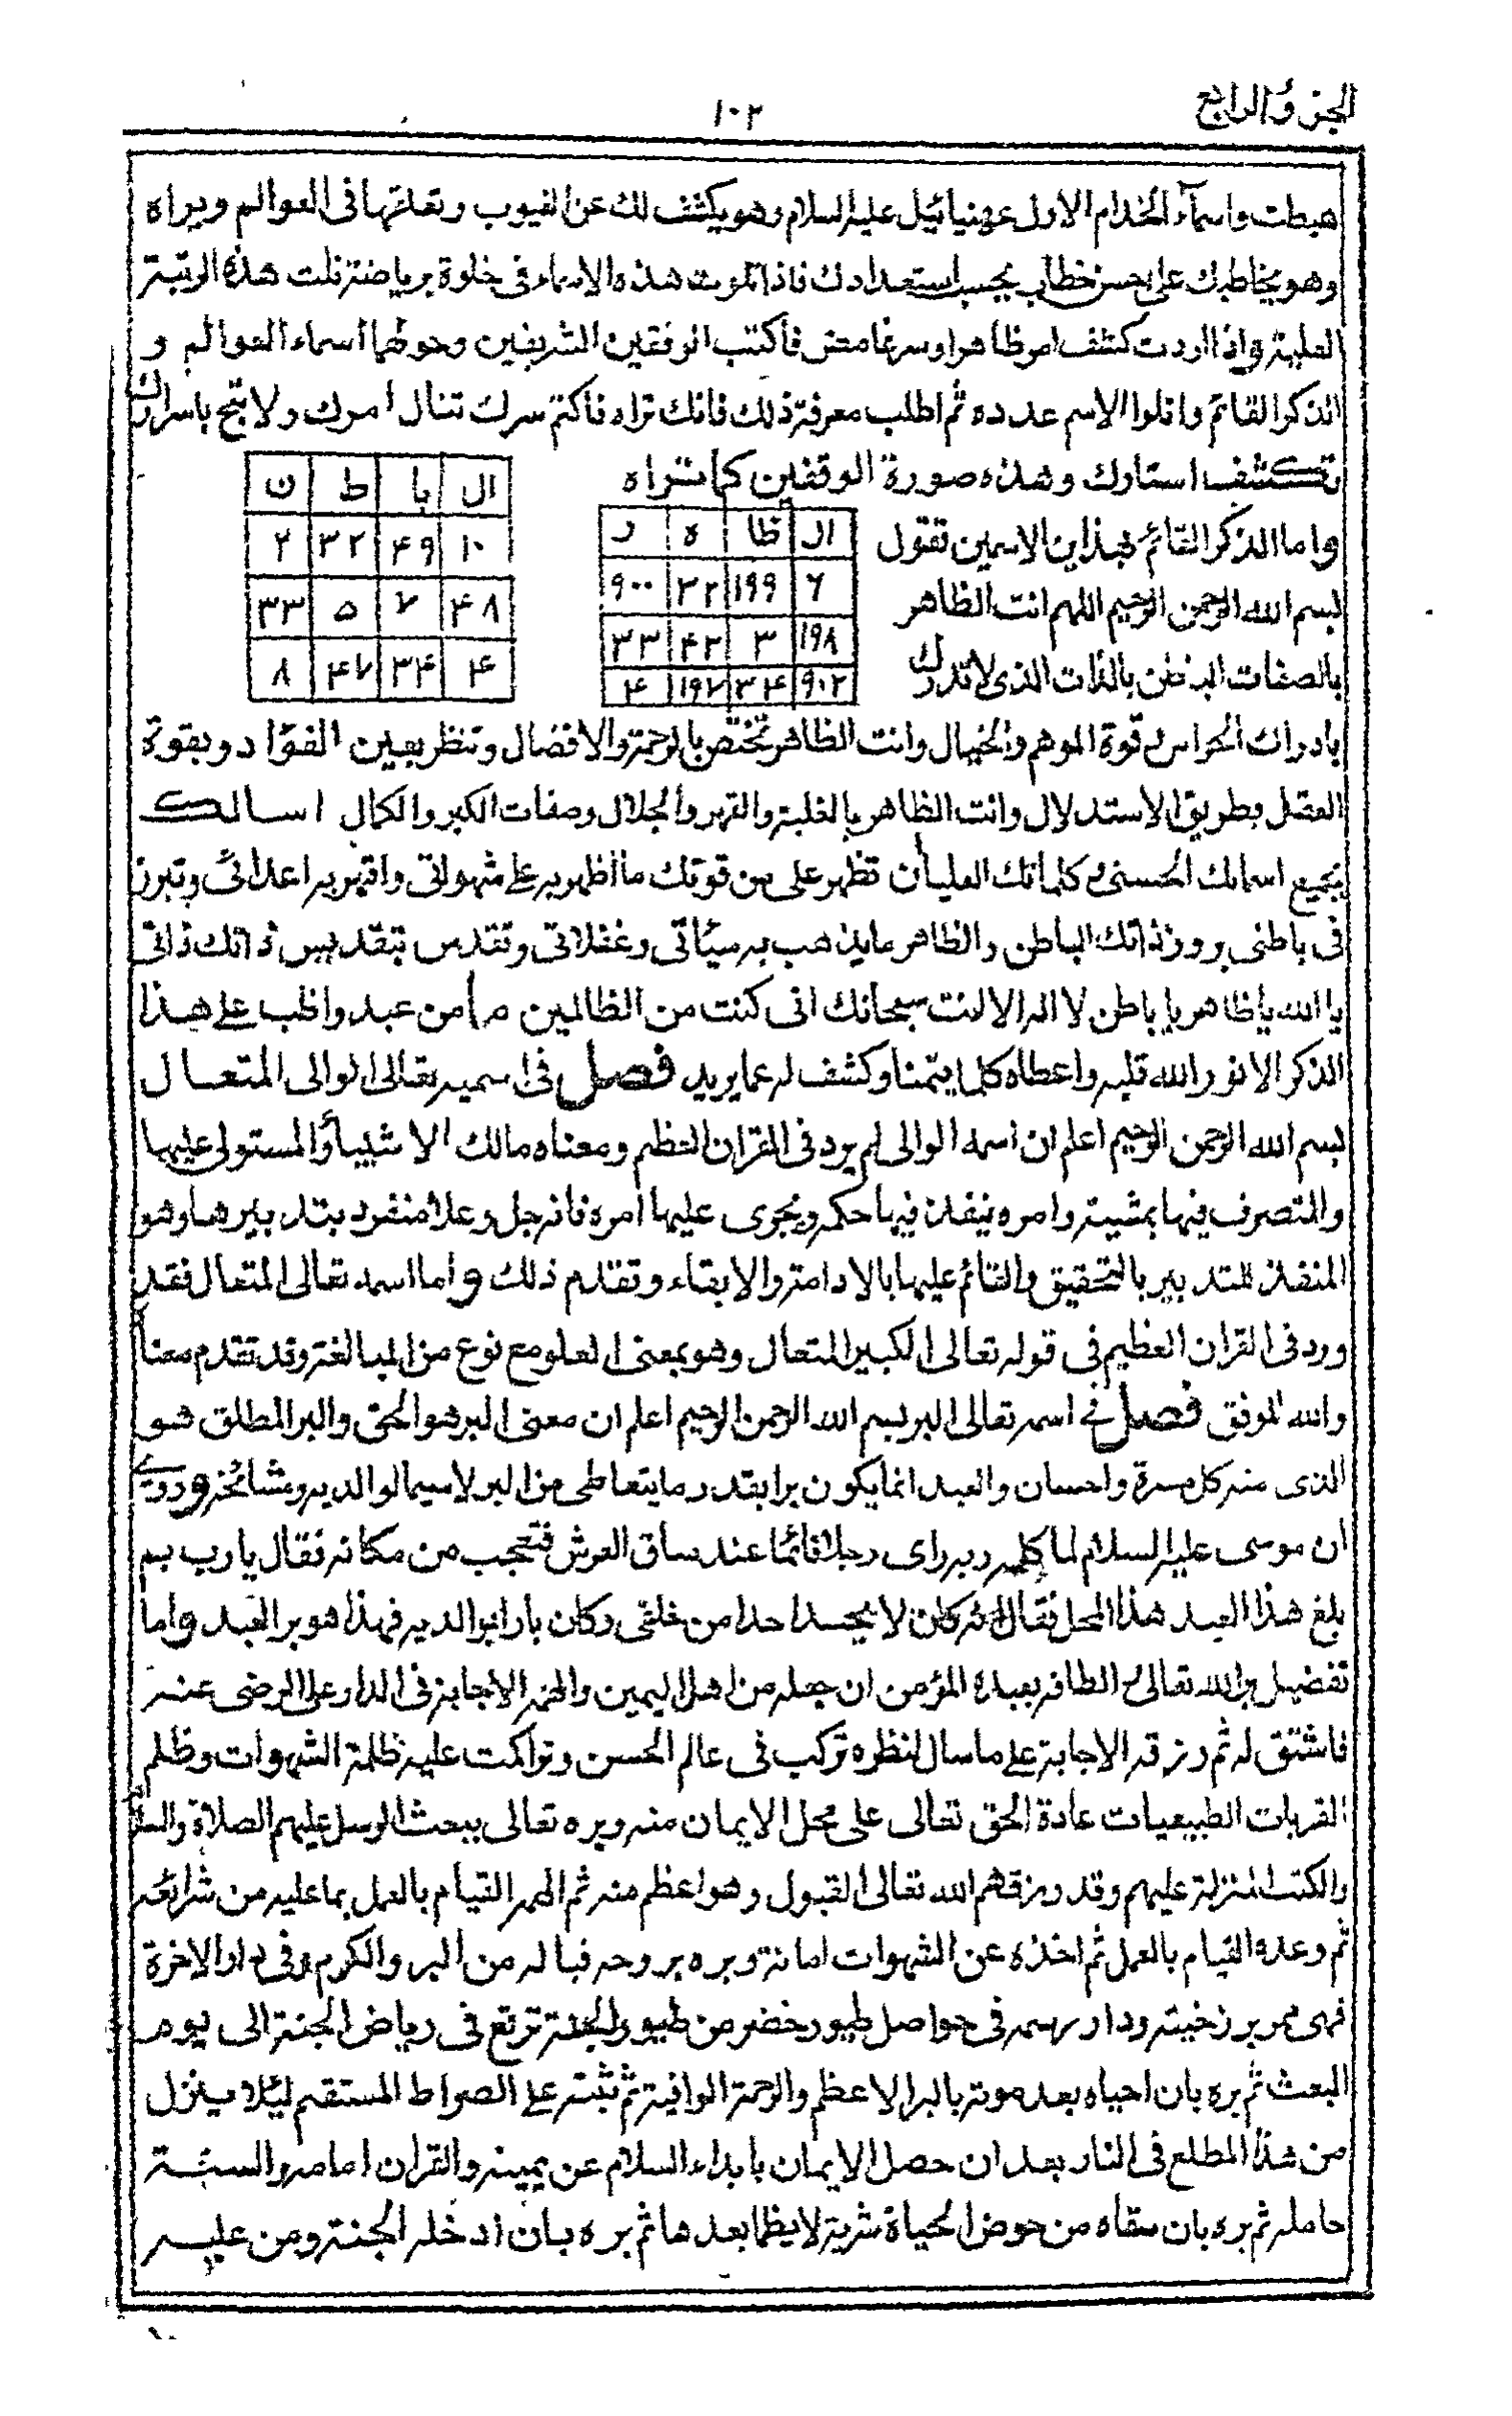 الجزؤ الرابع
۱۰۲
هبطت واسمآء الخدام الاول عهنيائيل عليه السلام وهو يكشف لك عن الغيوب وتعلقها فى العوالم ويراه
وهو يخاطبك على حسن خطاب بحسب استعدادك فاذا تلوت هذه الاسماء فى خلوة برياضة نلت هذه الرتبة
العلية واذا اردت كشف امر ظاهر او سر غامض فاكتب الوفقين الشريفين وحولهما اسماء العوالم و
الذكر القائم واتلوا الاسم عدده ثم اطلب معرفة ذلك فانك تراه فاكتم سرك تنال امرك ولا تبح باسرارك
تكشف استارك وهذه صورة الوفقين كما تراه
ال ظا ه ر
۶ ۱۹۹ ۳۲ ۹۰۰
۱۹۸ ۳ ۴۲ ۳۳
۹۰۲ ۳۴ ۱۹۷ ۴
ال با ط ن
۱۰ ۴۹ ۳۲ ۲
۴۸ ۷ ۵ ۳۳
۴ ۳۴ ۴۷ ۸
واما الذكر القائم بهذين الاسمين تقول
بسم الله الرحمن الرحيم اللهم انت الظاهر
بالصفات الباطن بالذات الذى لا تدرك
بادراك الحواس وقوة الوهم والخيال وانت الظاهر تختص بالرحمة والافضال وتنظر بعين الفؤاد وبقوة
العقل بطريق الاستدلال وانت الظاهر بالغلبة والقهر والجلال وصفات الكبر والكمال اسالك
بجميع اسمائك الحسنى وكلماتك العليا ان تظهر على من قوتك ما اظهر به على شهواتى واقهر به اعدائى وتبرز
فى باطنى بروز ذاتك الباطن والظاهر ما يذهب به سيئاتى وغفلاتى وتقدس بتقديس ذاتك ذاتى
يا الله يا ظاهر يا باطن لا اله الا انت سبحانك انى كنت من الظالمين ما من عبد واظب على هذا
الذكر الا نور الله قلبه واعطاه كلما يتمنا وكشف له عما يريد فصل فى اسميه تعالى الوالى المتعال
بسم الله الرحمن الرحيم اعلم ان اسمه الوالى لم يرد فى القران العظم ومعناه مالك الاشيياؤ المستولى عليها
والمتصرف فيها بمشيته وامره ينفذ فيها حكمه ويجرى عليها امره فانه جل وعلا منفرد بتدبيرها وهو
المنفذ للتدبير بالتحقيق والقائم عليها بالادامة والابقاء وتقدم ذلك واما اسمه تعالى المتعال فقد
ورد فى القران العظيم فى قوله تعالى الكبير المتعال وهو بمعنى العلو مع نوع من المبالغة وقد تقدم معناه
والله الموفق فصل فى اسمه تعالى البر بسم الله الرحمن الرحيم اعلم ان معنى البر هو الحق والبر المطلق هو
الذى منه كل مسرة واحسان والعبد انما يكون برا بقدر ما يتعاطى من البر لا سيما لوالديه ومشائخه وروى
ان موسى عليه السلام لما كلمه ربه راى رجلا قائما عند ساق العرش فتعجب من مكانه فقال يا رب بم
بلغ هذا العبد هذا المحل فقال انه كان لا يحسد احدا من خلقى وكان بارا بوالديه فهذا هو بر العبد واما
تفضيل بر الله تعالى والطافه بعبده المؤمن ان جعله من اهل اليمين والهمه الاجابة فى الدار على الرضى عنه
فاشتق له ثم رزقه الاجابة على ما سال لنظره تركب فى عالم الحسن وتراكمت عليه ظلمة الشهوات وظلم
القربات الطبيعيات عادة الحق تعالى على محل الايمان منه وبره تعالى ببعث الرسل عليهم الصلاة والسلام
والكتب المنزلة عليهم وقد رزقهم الله تعالى القبول وهو اعظم منه ثم الهمه القيام بالعمل بما عليه من شرائعه
ثم وعده القيام بالعمل ثم اخذه عن الشهوات امانة وبره بروحه فيا له من البر والكرم وفى دار الاخرة
فهى فى حواصل طيور خضر من طيور الجنة ترتع فى رياض الجنة الى يوم
البعث ثم بره بان احياه بعد موته بالبر الاعظم والرحمة الوافية ثم ثبته على الصراط المستقم ليئلا ينزل
من هذا المطلع فى النار بعد ان حصل الايمان بابداء السلام عن يمينه والقران امامه والسنة
حامله ثم بره بان سقاه من حوض الحياة شربة لا يظما بعدها ثم بره بان ادخله الجنة ومن عليه